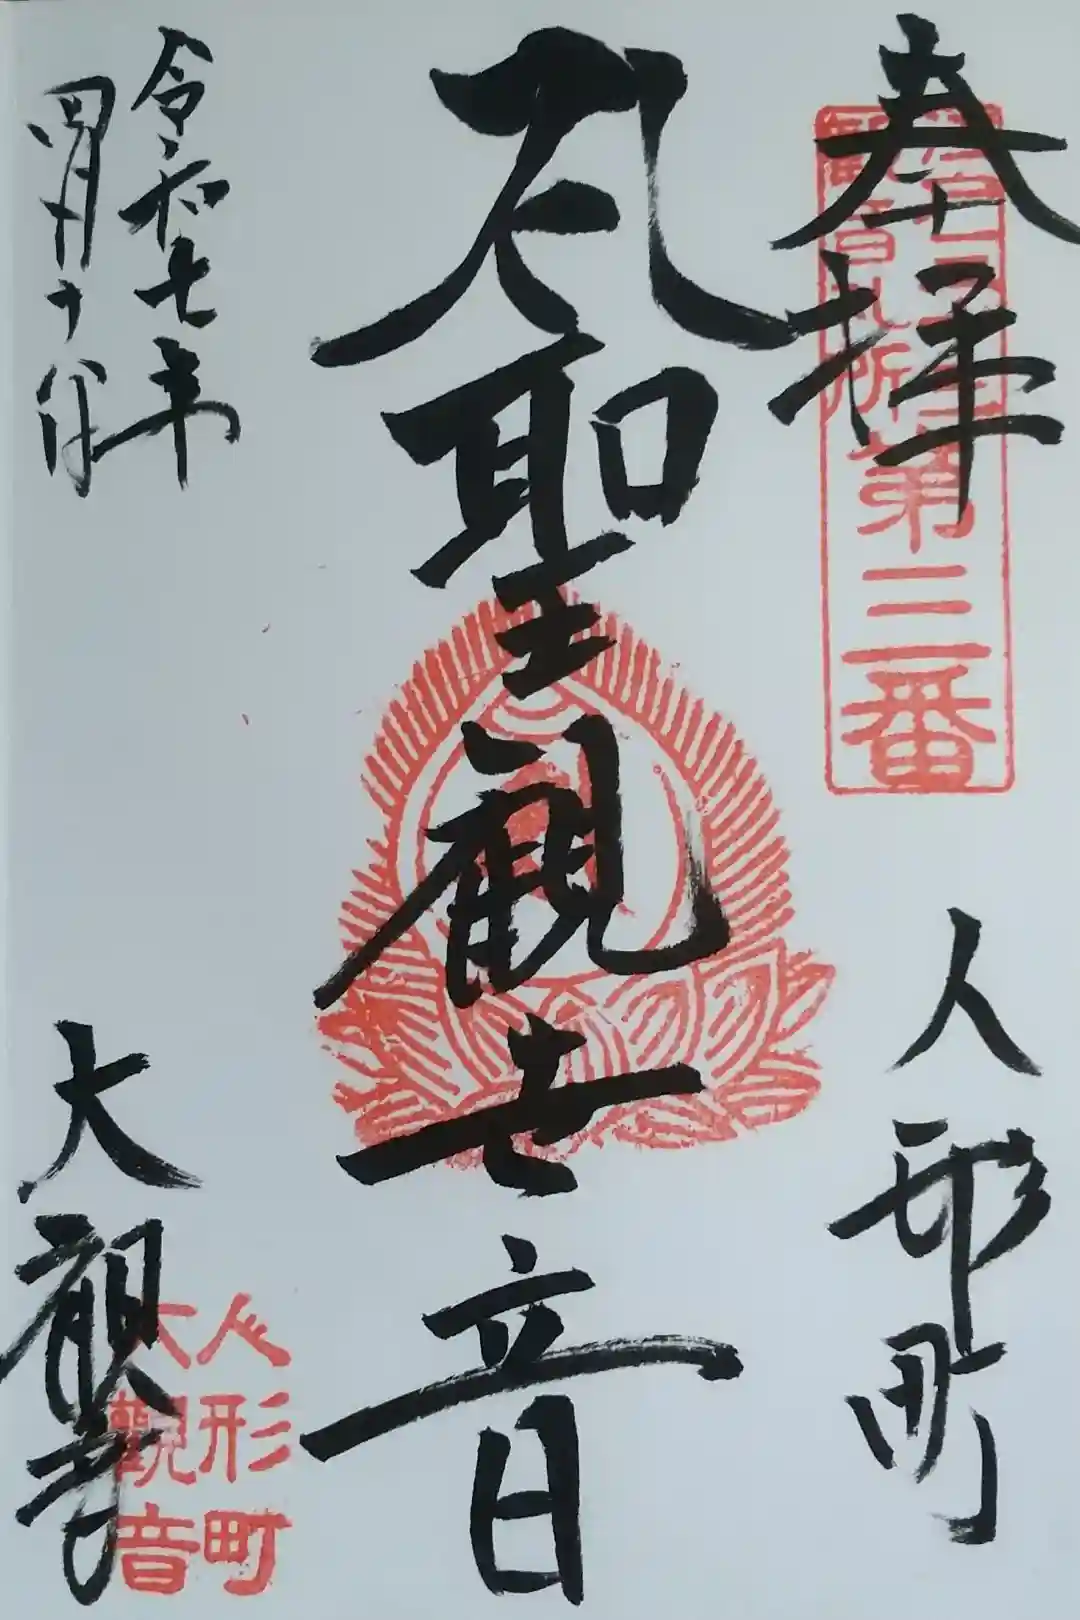 奉拝
江戸三十三
觀音札所
第三番
人形町
聖観世音
令和七年
四月十八日
大観音
人形町
大觀音